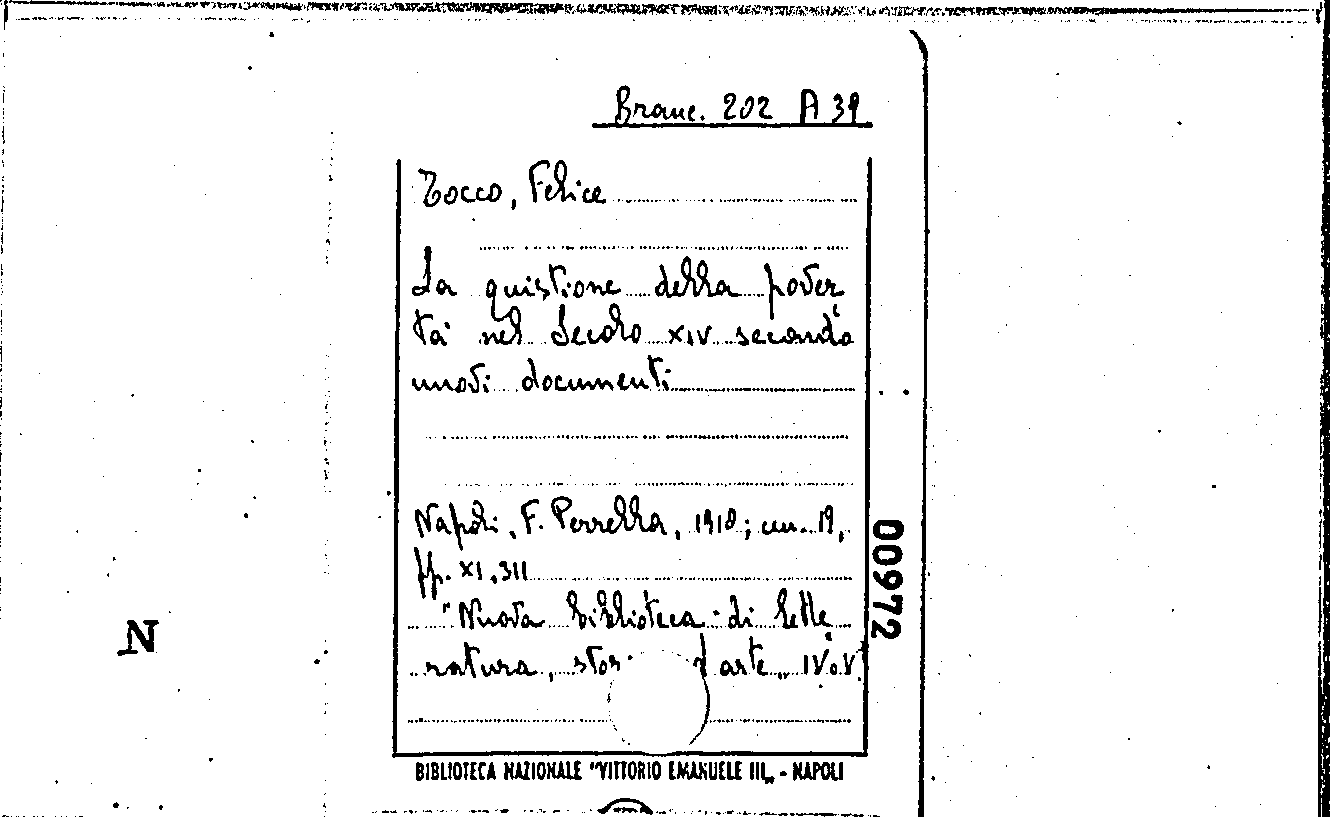 Branc. 202 A 39
Tocco, Felice
La quistione della pover
tà nel Secolo XIV secondo
nuovi documenti
Napoli, F. Perrella, 1910; cm. 19,
pp. XI, 311
"Nuova biblioteca di lette
ratura, stor d'arte„ IV o V
00972
N
BIBLIOTECA NAZIONALE "VITTORIO EMANUELE III„ - NAPOLI